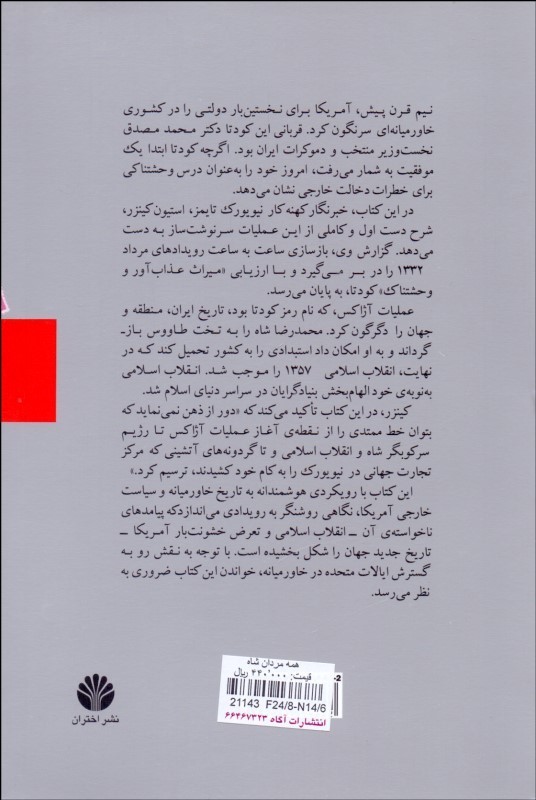 نیم قرن پیش، آمریکا برای نخستین‌بار دولتی را در کشوری
خاورمیانه‌ای سرنگون کرد. قربانی این کودتا دکتر محمد مصدق
نخست‌وزیر منتخب و دموکرات ایران بود. اگرچه کودتا ابتدا یک
موفقیت به شمار می‌رفت، امروز خود را به‌عنوان درس وحشتناکی
برای خطرات دخالت خارجی نشان می‌دهد.
در این کتاب، خبرنگار کهنه‌کار نیویورک تایمز، استیون کینزر،
شرح دست اول و کاملی از این عملیات سرنوشت‌ساز به دست
می‌دهد. گزارش وی، بازسازی ساعت به ساعت رویدادهای مرداد
۱۳۳۲ را در بر می‌گیرد و با ارزیابی «میراث عذاب‌آور و
وحشتناک» کودتا، به پایان می‌رسد.
عملیات آژاکس، که نام رمز کودتا بود، تاریخ ایران، منطقه و
جهان را دگرگون کرد. محمدرضا شاه را به تخت طاووس باز-
گرداند و به او امکان داد استبدادی را به کشور تحمیل کند که در
نهایت، انقلاب اسلامی ۱۳۵۷ را موجب شد. انقلاب اسلامی
به‌نوبه‌ی خود الهام‌بخش بنیادگرایان در سراسر دنیای اسلام شد.
کینزر، در این کتاب تأکید می‌کند که «دور از ذهن نمی‌نماید که
بتوان خط ممتدی را از نقطه‌ی آغاز عملیات آژاکس تا رژیم
سرکوبگر شاه و انقلاب اسلامی و تا گردونه‌های آتشینی که مرکز
تجارت جهانی در نیویورک را به کام خود کشیدند، ترسیم کرد.»
این کتاب با رویکردی هوشمندانه به تاریخ خاورمیانه و سیاست
خارجی آمریکا، نگاهی روشنگر به رویدادی می‌اندازد که پیامدهای
ناخواسته‌ی آن ـ انقلاب اسلامی و تعرض خشونت‌بار آمریکا ـ
تاریخ جدید جهان را شکل بخشیده است. با توجه به نقش رو به
گسترش ایالات متحده در خاورمیانه، خواندن این کتاب ضروری به
نظر می‌رسد.
همه مردان شاه
قیمت: ۴۴۰٬۰۰۰ ریال
-2
21143 F24/8-N14/6
انتشارات آگاه ۶۶۴۶۷۳۲۳
نشر اختران